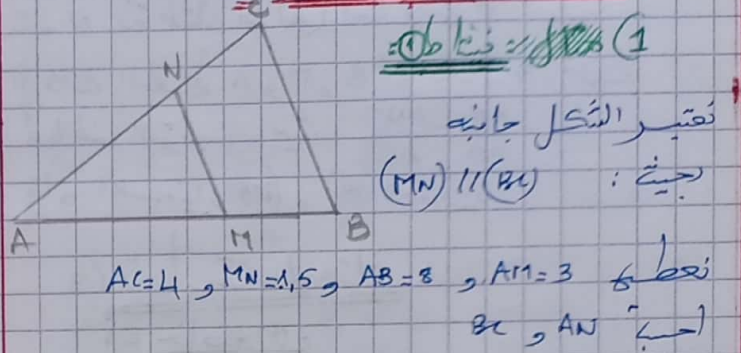 1) نشاط ①:
نعتبر الشكل جانبه
بحيث : (MN) // (BC)
نعطي AM=3 , AB=8 , MN=1,5 , AC=4
احسب AN , BC
C
N
A
M
B